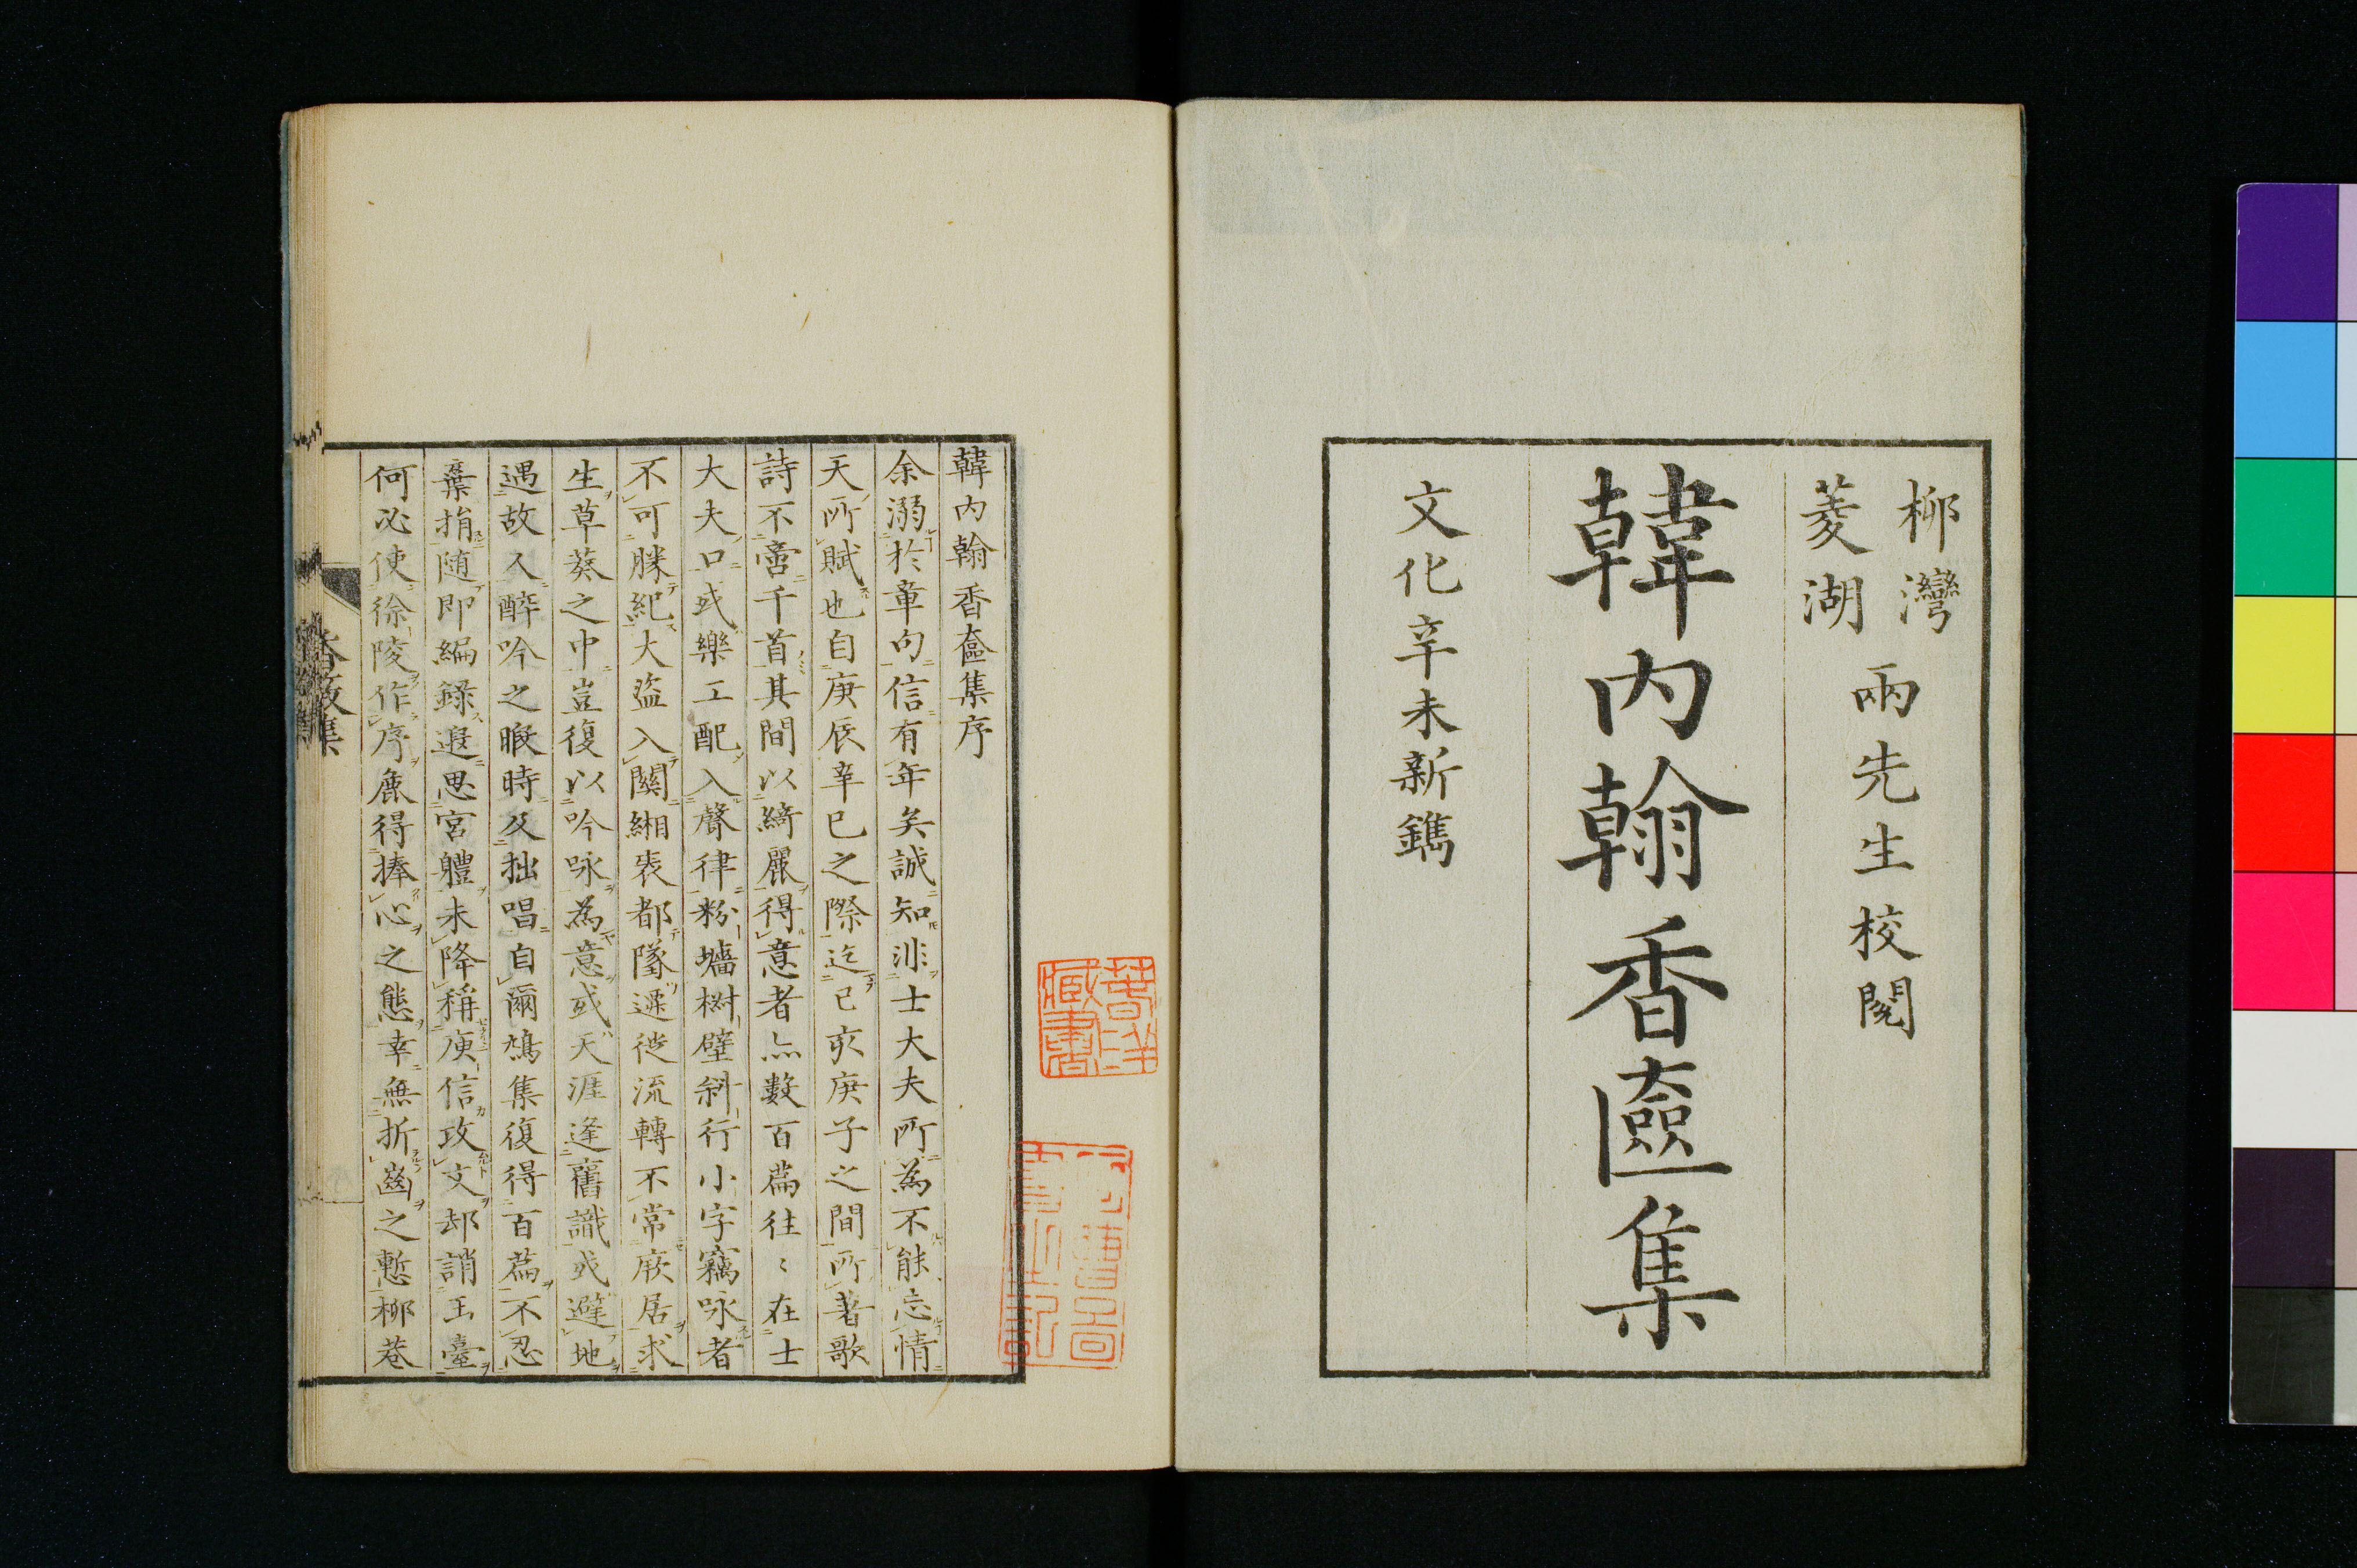 柳灣
菱湖
兩先生校閱
韓内翰香匳集
文化辛未新鐫
韓内翰香奩集序
余溺於章句信有年矣誠知非士大夫所為不能忘情
天所賦也自庚辰辛巳之際迄已亥庚子之間所著歌
詩不啻千首其間以綺麗得意者亦數百篇往〻在士
大夫口或樂工配入聲律粉墻椒壁斜行小字竊咏者
不可勝紀大盜入關緗袠都墜遷徙流轉不常厥居求
生草莽之中豈復以吟咏為意或天涯逢舊識或避地
遇故人醉吟之暇時及拙唱自爾鳩集復得百篇不忍
棄捐随即編録遐思宮體未降稱庾信攻文却誚玉臺
何必使徐陵作序麁得捧心之態幸無折齒之慙柳巷